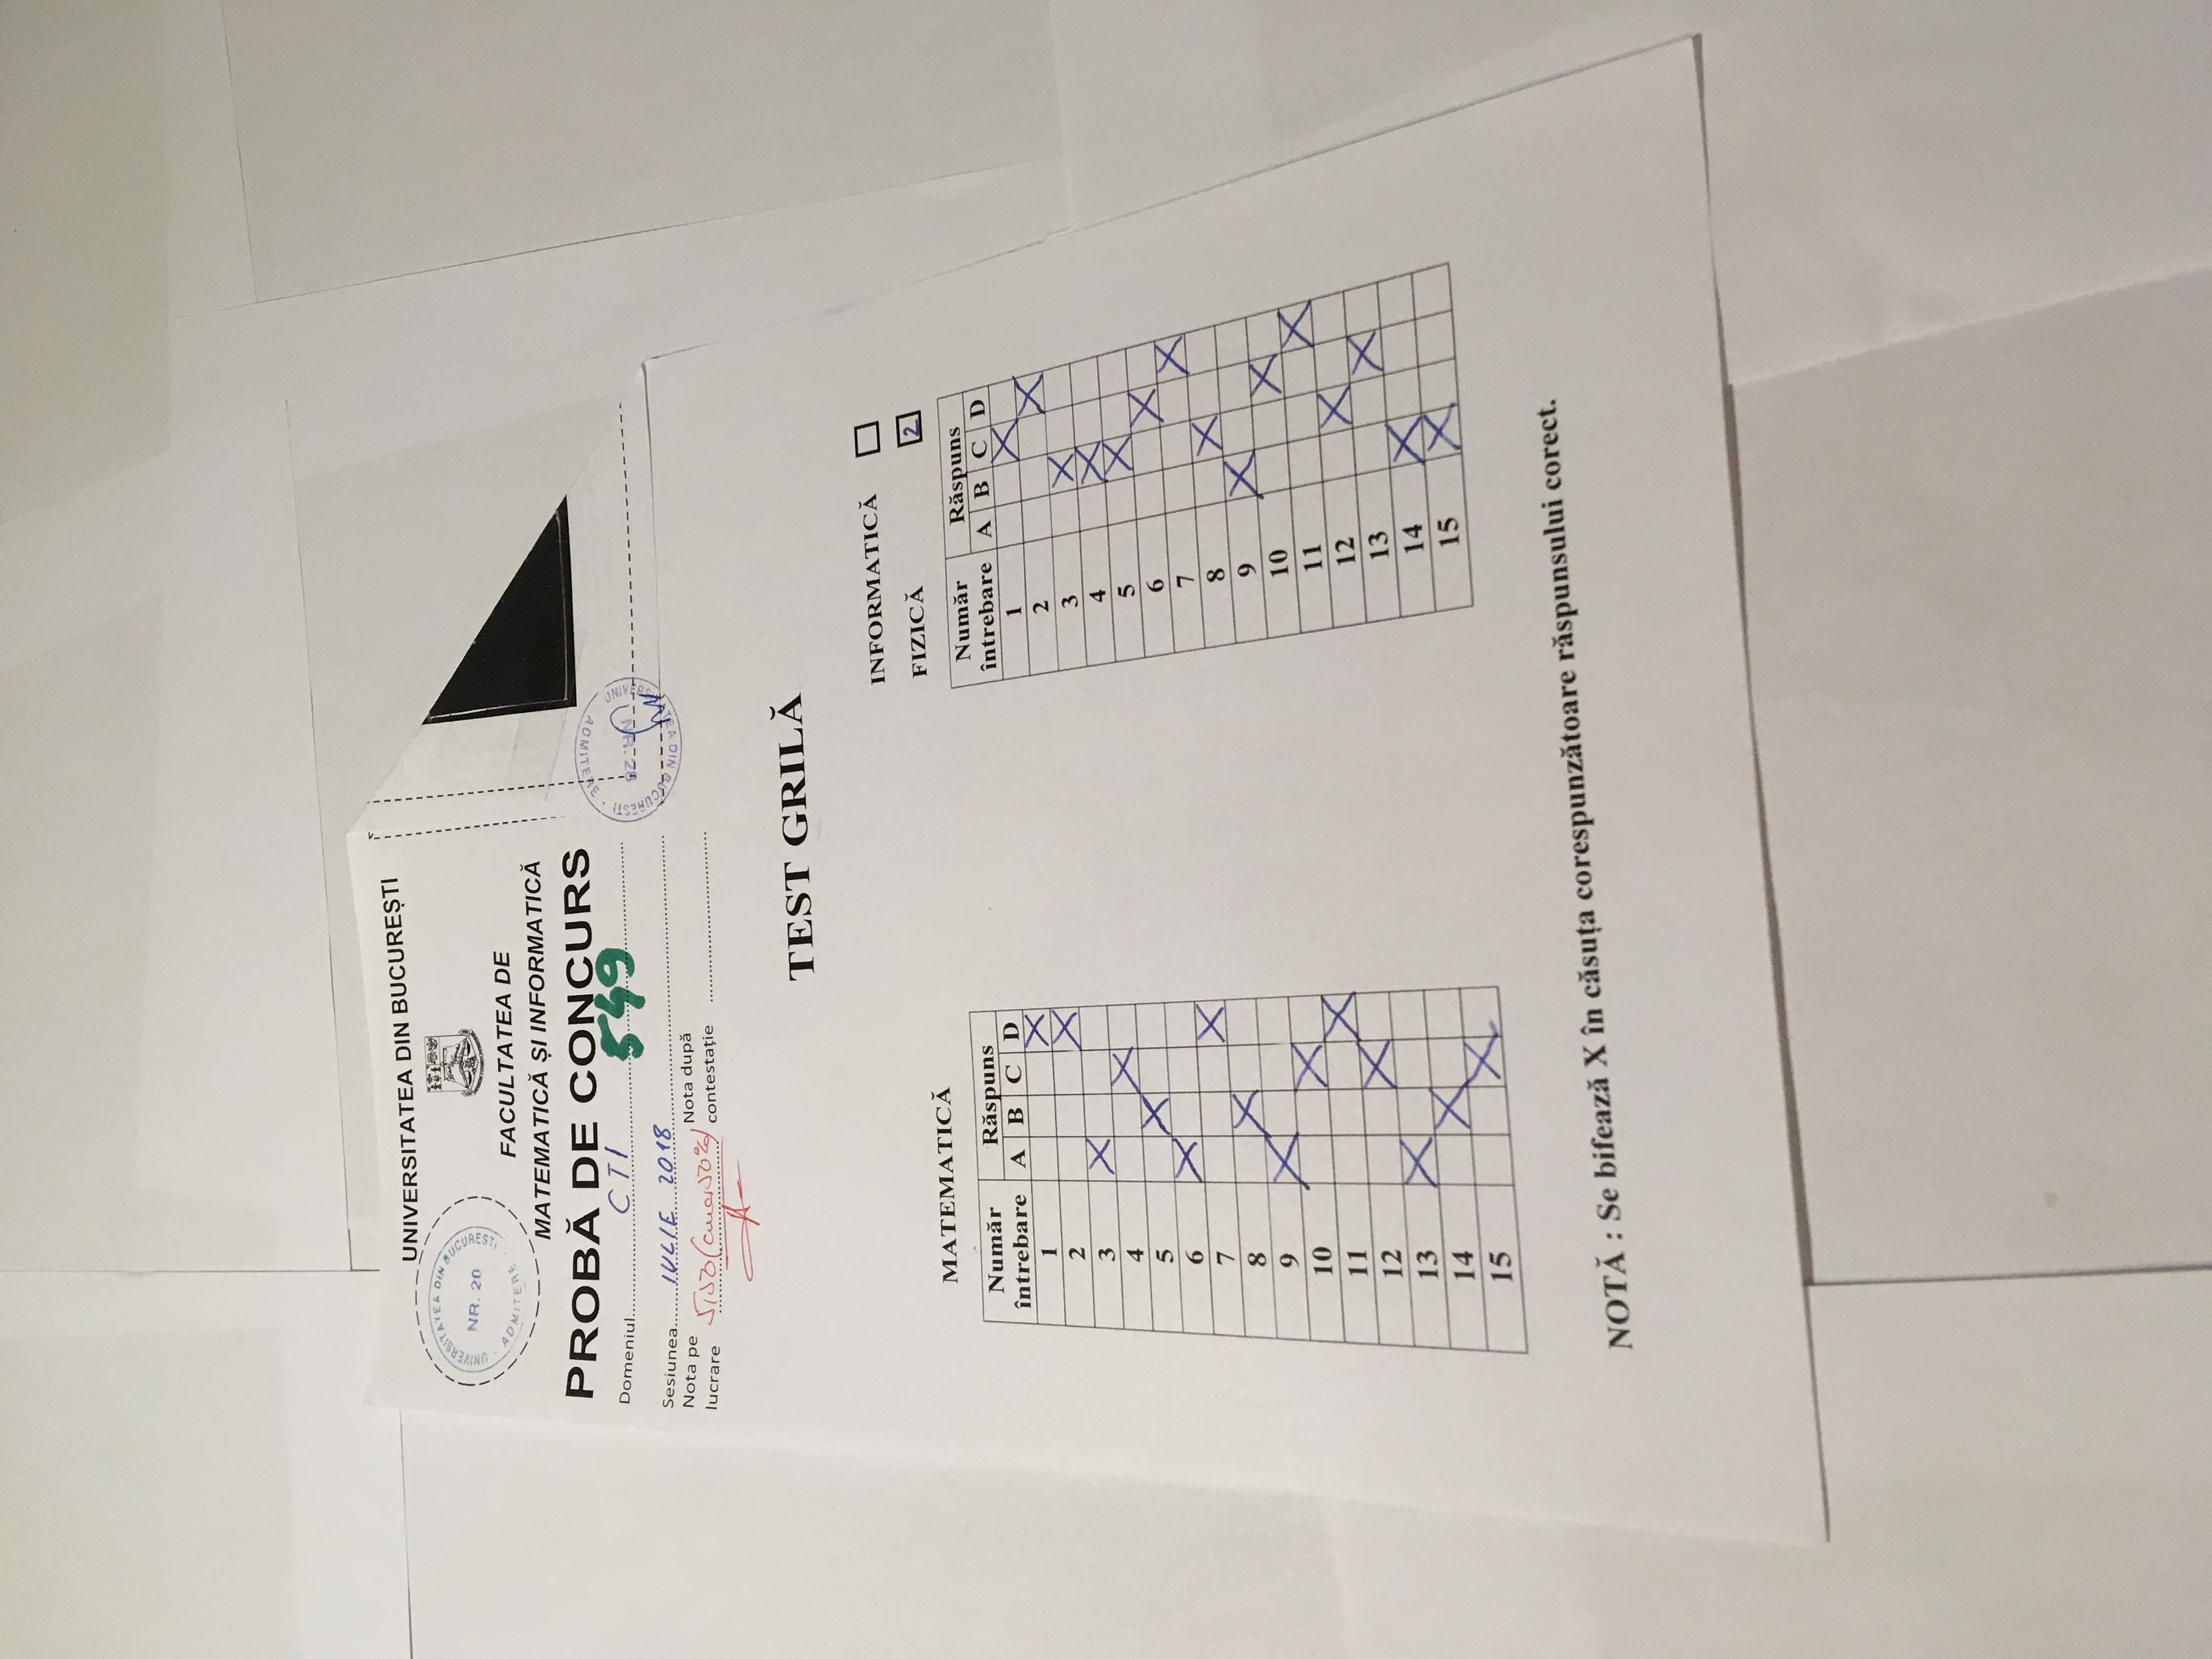 UNIVERSITATEA DIN BUCUREȘTI
UNIVERSITATEA DIN BUCUREȘTI
NR. 20
ADMITERE
FACULTATEA DE
MATEMATICĂ ȘI INFORMATICĂ
PROBĂ DE CONCURS
Domeniul CTI 549
Sesiunea IULIE 2018
Nota pe lucrare 5,50 (cinci 50%) Nota după contestație
UNIVERSITATEA DIN BUCUREȘTI
ADMITERE
TEST GRILĂ
INFORMATICĂ
FIZICĂ 2
MATEMATICĂ
Număr întrebare Răspuns
A B C D
1 X
2 X
3 X
4 X
5 X
6 X
7 X
8 X
9 X
10 X
11 X
12 X
13 X
14 X
15 X
Număr întrebare Răspuns
A B C D
1 X
2 X
3 X
4 X
5 X
6 X
7 X
8 X
9 X
10 X
11 X
12 X
13 X
14 X
15 X
NOTĂ : Se bifează X în căsuța corespunzătoare răspunsului corect.